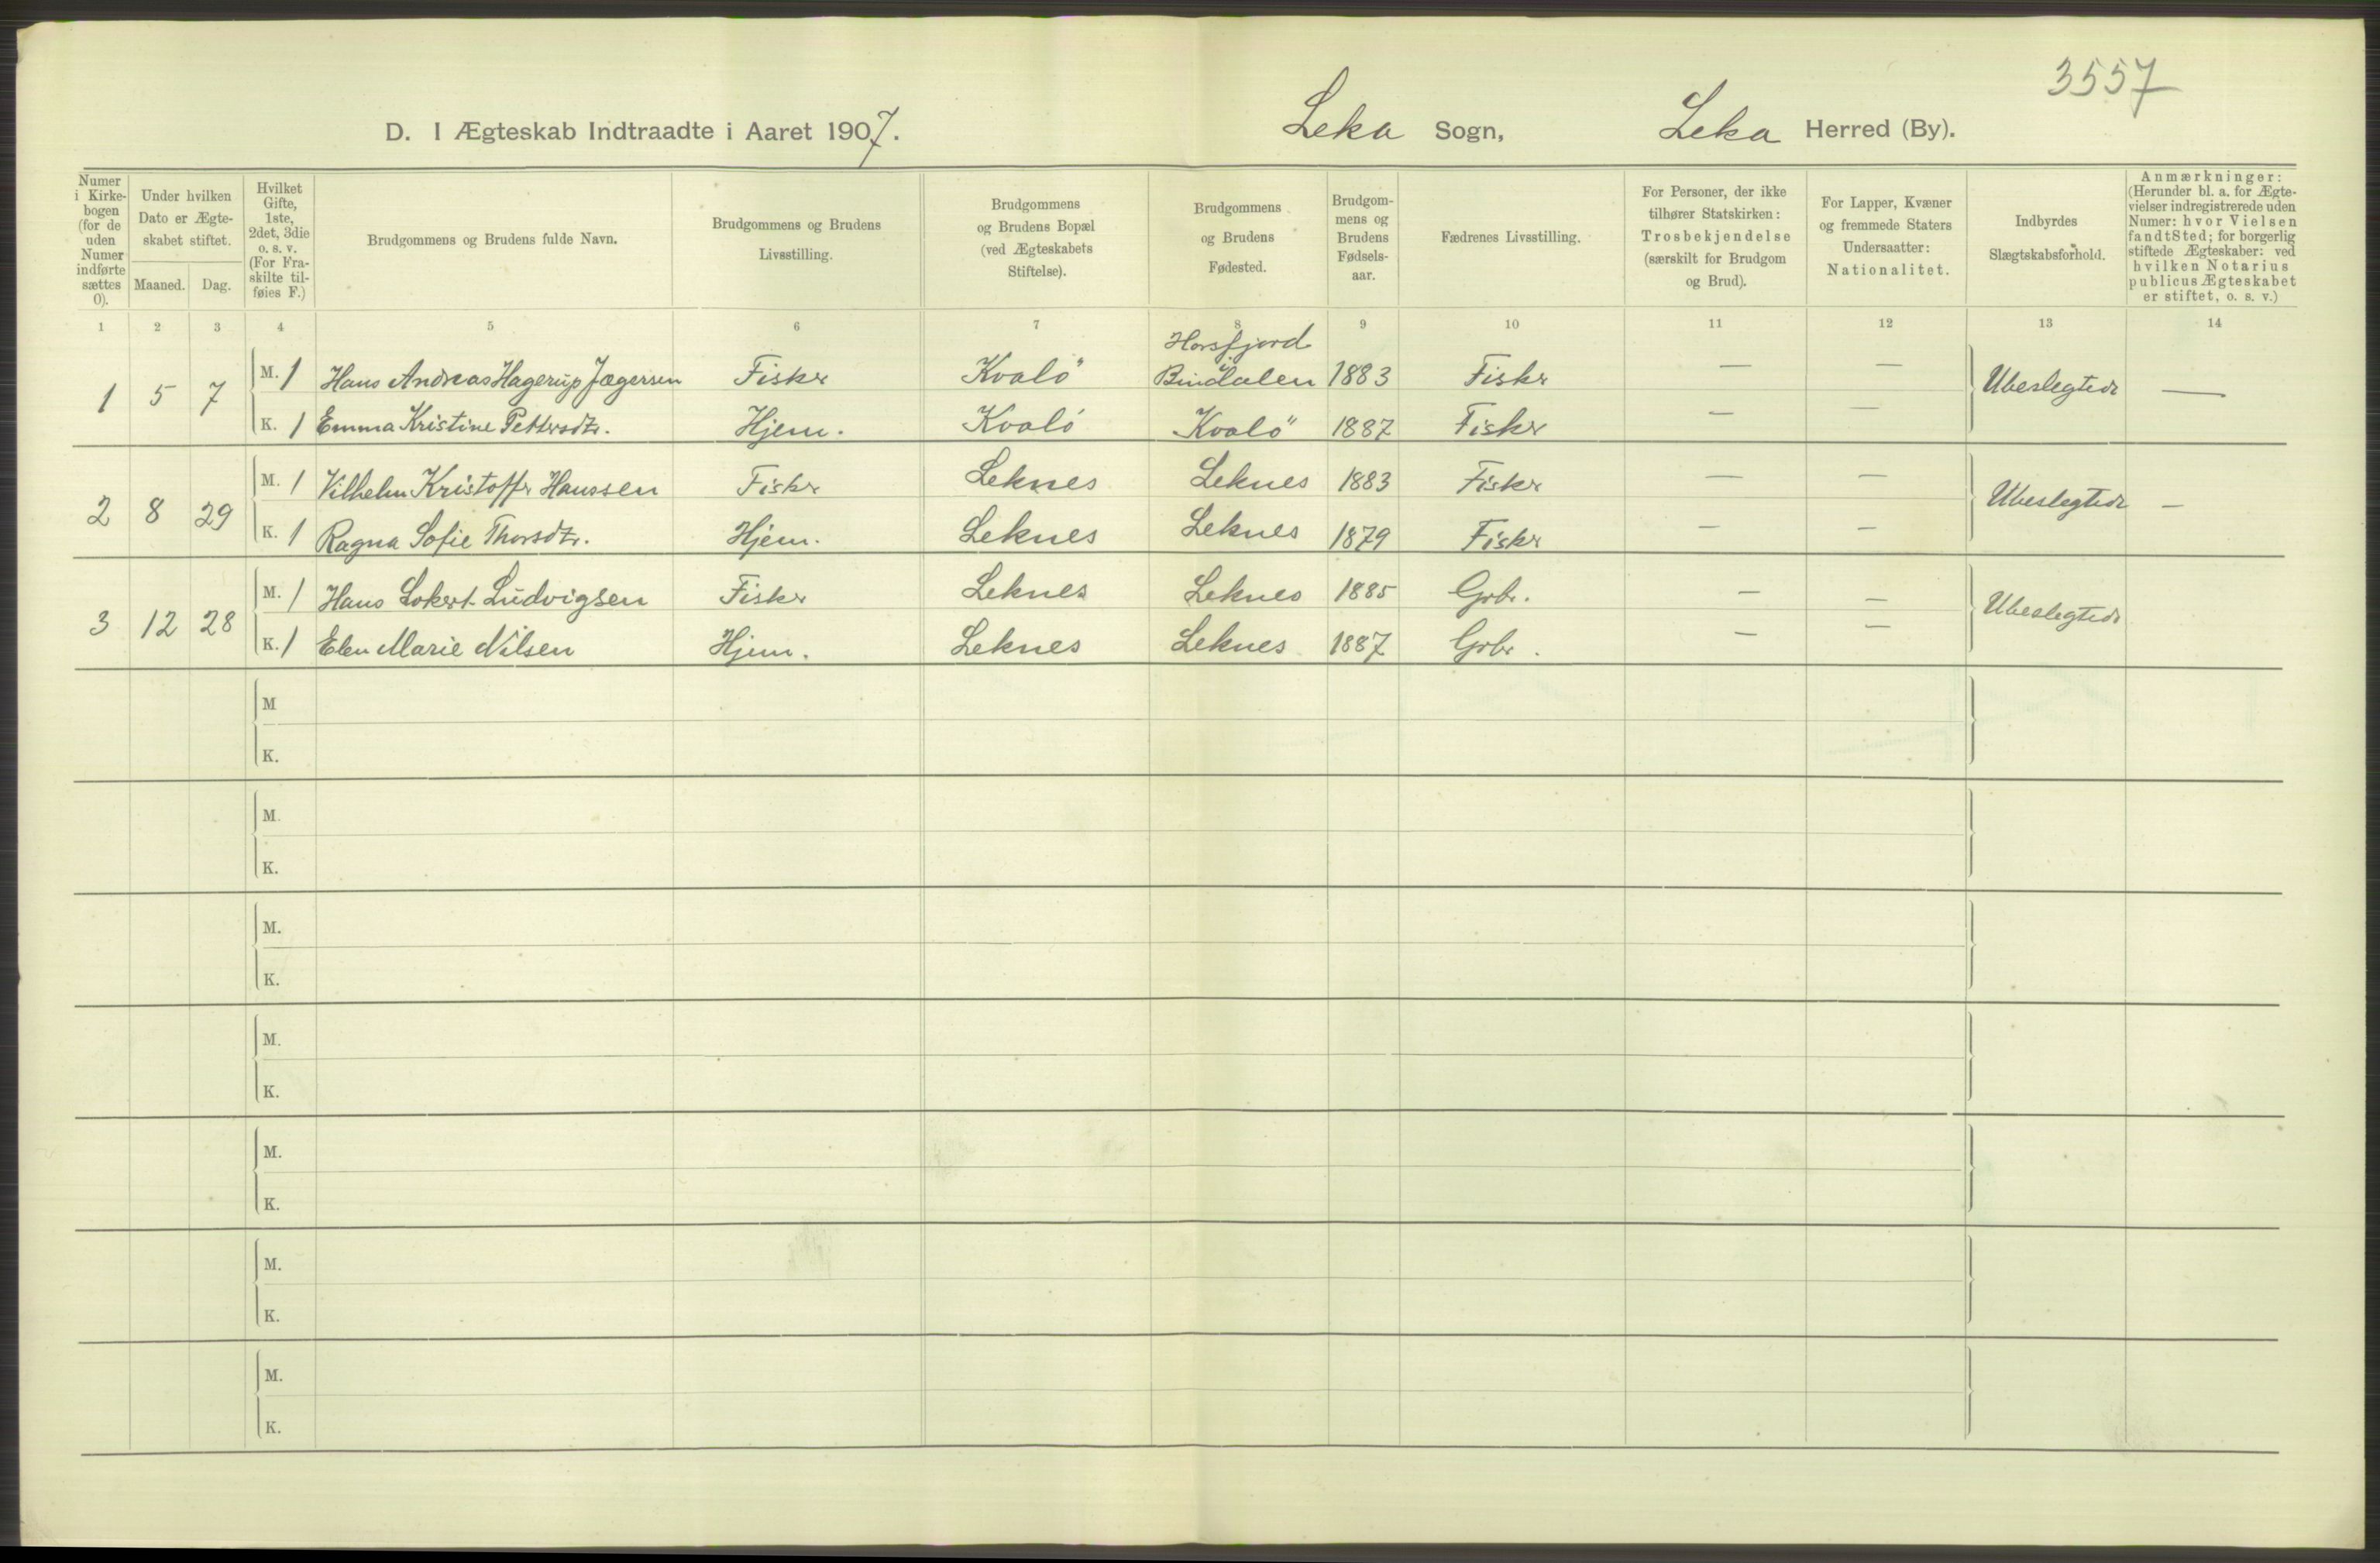 3557
D. I Ægteskab Indtraadte i Aaret 1907. Leka Sogn, Leka Herred (By).
Numer i Kirkebogen (for de uden Numer indførte sættes 0). Under hvilken Dato er Ægteskabet stiftet. Maaned. Dag. Hvilket Gifte, 1ste, 2det, 3die o. s. v. (For Fraskilte tilføies F.) Brudgommens og Brudens fulde Navn. Brudgommens og Brudens Livsstilling. Brudgommens og Brudens Bopæl (ved Ægteskabets Stiftelse). Brudgommens og Brudens Fødested. Brudgommens og Brudens Fødselsaar. Fædrenes Livsstilling. For Personer, der ikke tilhører Statskirken: Trosbekjendelse (særskilt for Brudgom og Brud). For Lapper, Kvæner og fremmede Staters Undersaatter: Nationalitet. Indbyrdes Slægtskabsforhold. Anmærkninger: (Herunder bl. a. for Ægtevielser indregistrerede uden Numer: hvor Vielsen fandt Sted; for borgerlig stiftede Ægteskaber: ved hvilken Notarius publicus Ægteskabet er stiftet, o. s. v.)
1 2 3 4 5 6 7 8 9 10 11 12 13 14
1 5 7 M. 1 Hans Andreas Hagerup Jægersen Fisker Kvalö Horsfjord i Bindalen 1883 Fisker — — Ubeslegtede —
K. 1 Emma Kristine Pettersdtr. Hjem. Kvalö Kvalö 1887 Fisker — —
2 8 29 M. 1 Vilhelm Kristoffer Hanssen Fisker Leknes Leknes 1883 Fisker — — Ubeslegtede —
K. 1 Ragna Sofie Thorsdtr. Hjem. Leknes Leknes 1879 Fisker — —
3 12 28 M. 1 Hans Lokert Ludvigsen Fisker Leknes Leknes 1885 Grbr. — — Ubeslegtede
K. 1 Elen Marie Nilsen Hjem. Leknes Leknes 1887 Grbr. — —
M
K.
M.
K.
M.
K.
M.
K.
M.
K.
M.
K.
M.
K.